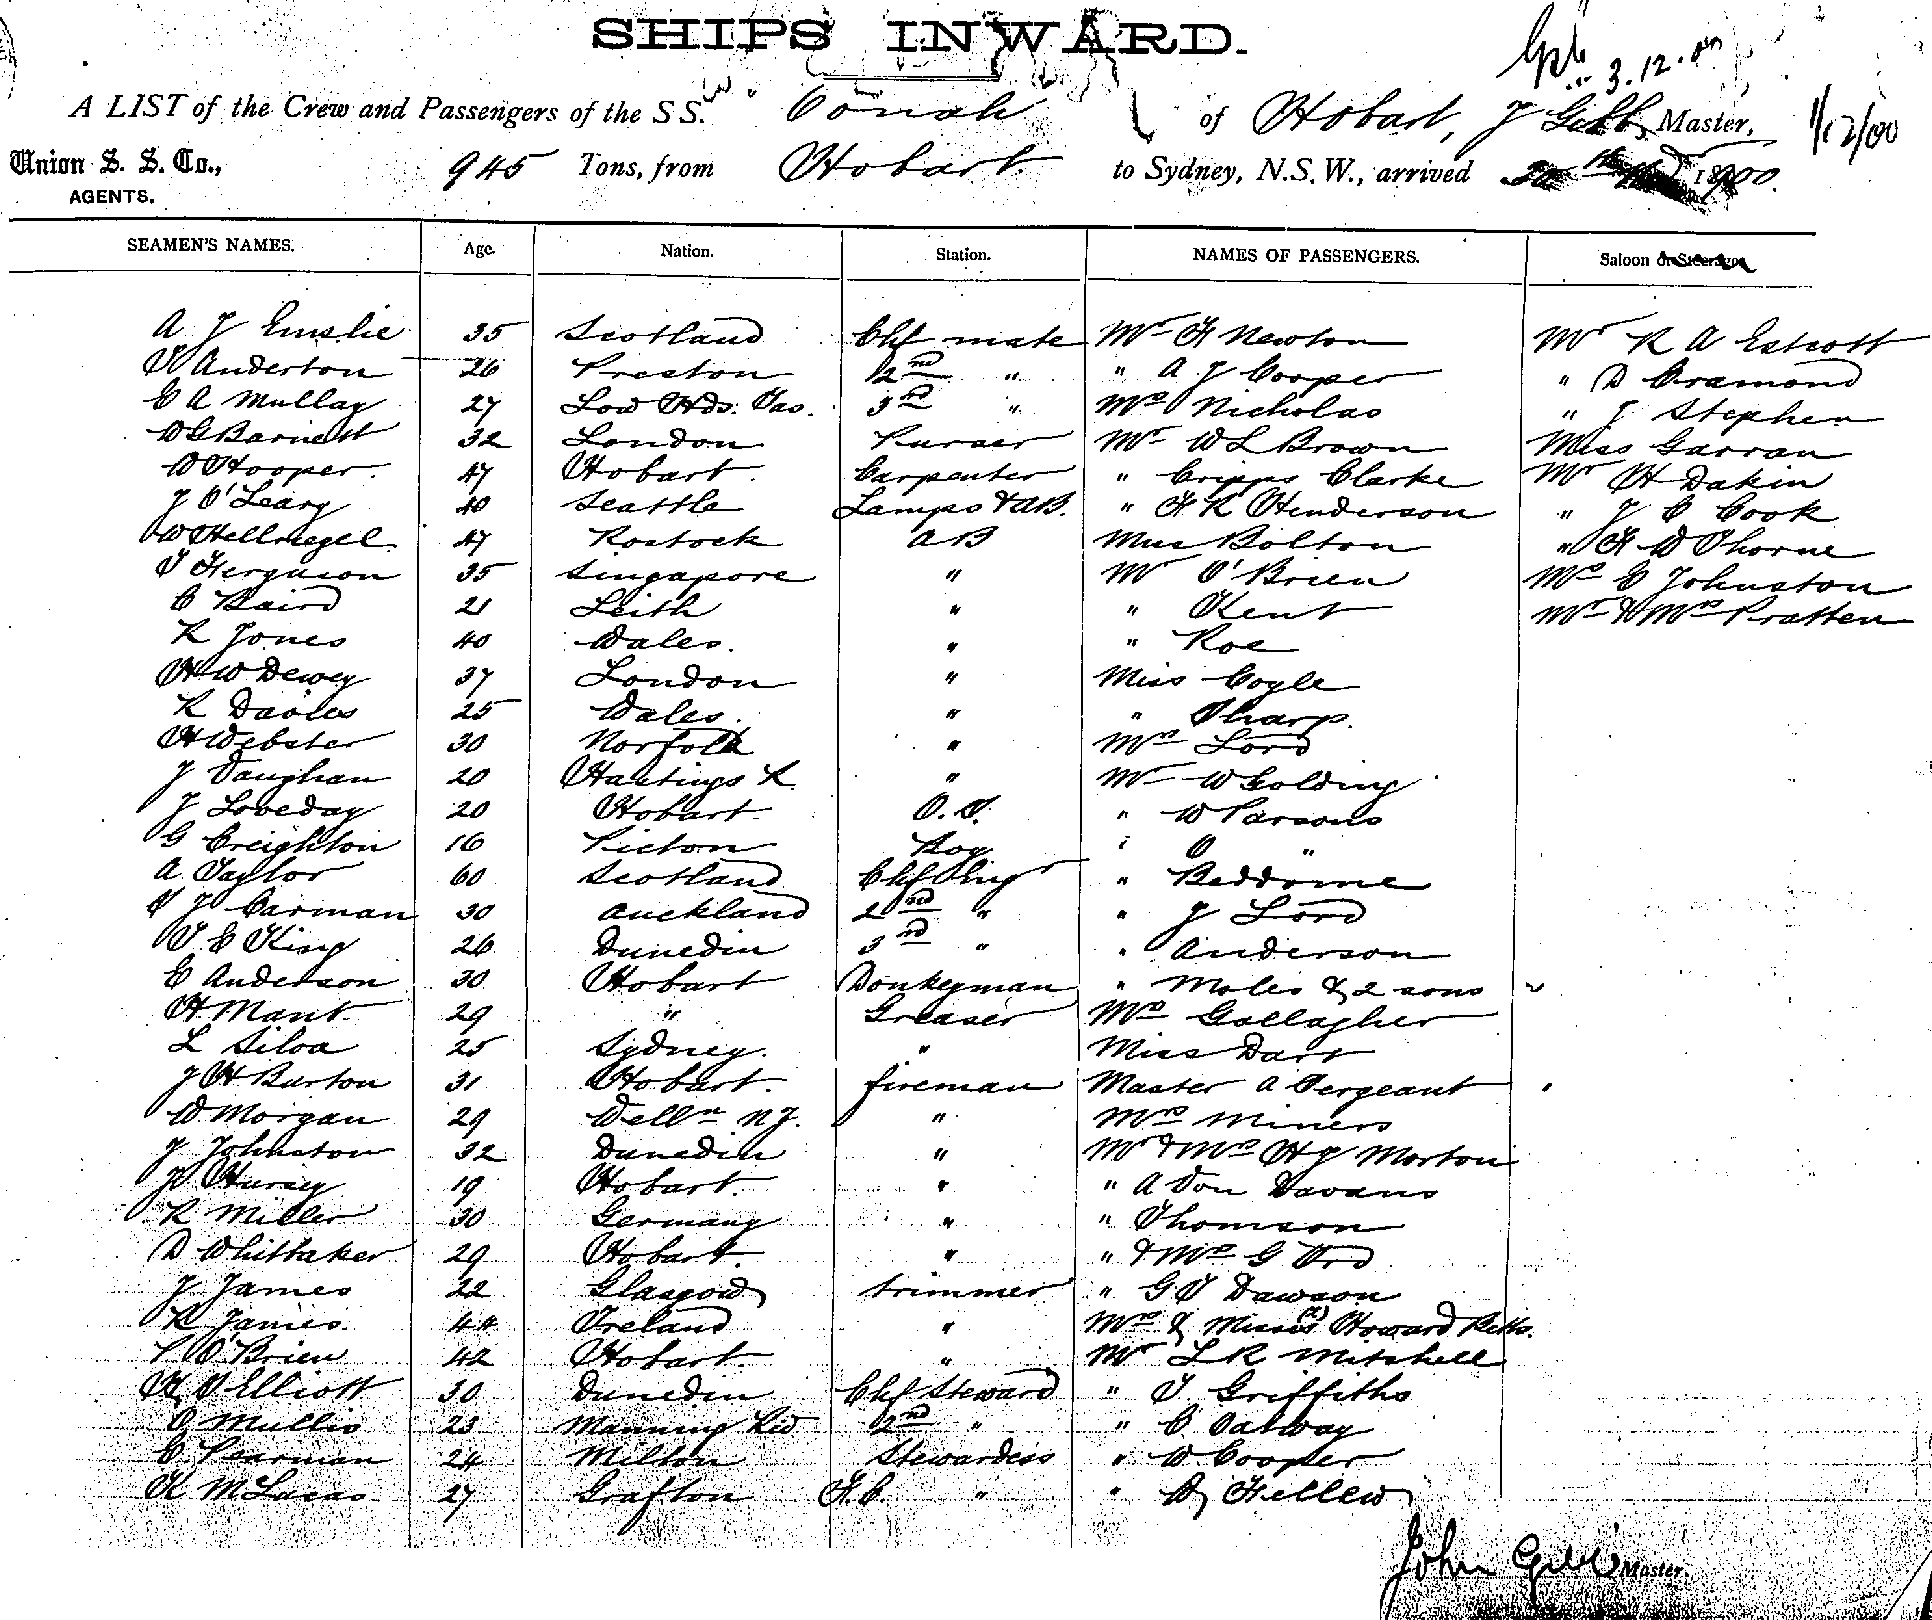 SHIPS INWARD.
3.12.
A LIST of the Crew and Passengers of the SS. "Oonah" of Hobart, J Gibb, Master,
1/12/00
Union S. S. Co., 945 Tons, from Hobart to Sydney, N.S.W., arrived 1900.
AGENTS.
SEAMEN'S NAMES. Age. Nation. Station. NAMES OF PASSENGERS. Saloon or Steerage
A J Emslie 35 Scotland Chf mate Mr H Newton Mr R A Estcott
Anderton 26 Preston 2nd " " A J Cooper " D Cramond
E A Mullay 27 Low Hds. Tas. 3rd " Mrs Nicholas " J Stephen
W G Barnett 32 London Purser Mr W L Brown Miss Garran
W Hooper 47 Hobart Carpenter " Cripps Clarke Mr H Dakin
J O'Leary 40 Seattle Lamps & AB. " F R Henderson " J C Cook
W Hellriegel 47 Rostock AB Miss Bolton " F W Thorne
T Ferguson 35 Singapore " Mr O'Brien Mrs E Johnston
C Baird 21 Leith " " Kent Mr & Mrs Pratten
R Jones 40 Wales. " " Roe
H W Dewey 37 London " Miss Coyle
R Davies 25 Wales. " " Tharp.
H Webster 30 Norfolk " Mrs Lord
J Vaughan 20 Hastings R " Mr W Golding
J Loveday 20 Hobart O.S. " W Parsons
G Creighton 16 Picton Boy " O "
A Taylor 60 Scotland Chf Eng " Beddome
T J Carman 30 Auckland 2nd " " J Lord
T E King 26 Dunedin 3rd " " Anderson
E Anderson 30 Hobart Donkeyman " Moles & 2 sons
H Mant 29 " Greaser Mrs Gallagher
L Silva 25 Sydney. " Miss Dart
J H Burton 31 Hobart. fireman Master A Sergeant
W Morgan 29 Welln N.Z. " Mrs Miners
J Johnston 32 Dunedin " Mr & Mrs H J Morton
Hursey 19 Hobart. " " A Von Davans
R Miller 30 Germany " " Thomson
D Whittaker 29 Hobart. " " & Mrs G Ord
J James 22 Glasgow trimmer " G T Dawson
R James 44 Ireland " Mrs & Misses (2) Howard
P O'Brien 42 Hobart " Mr L R Mitchell
H T Elliott 30 Dunedin Chf Steward " T Griffiths
O Mullis 23 Manning Riv 2nd " " C Salway
E Pearman 24 Milton Stewardess " W Cooper
K McLucas 27 Grafton F.C. " " Dy Kellew
John Gibb Master.